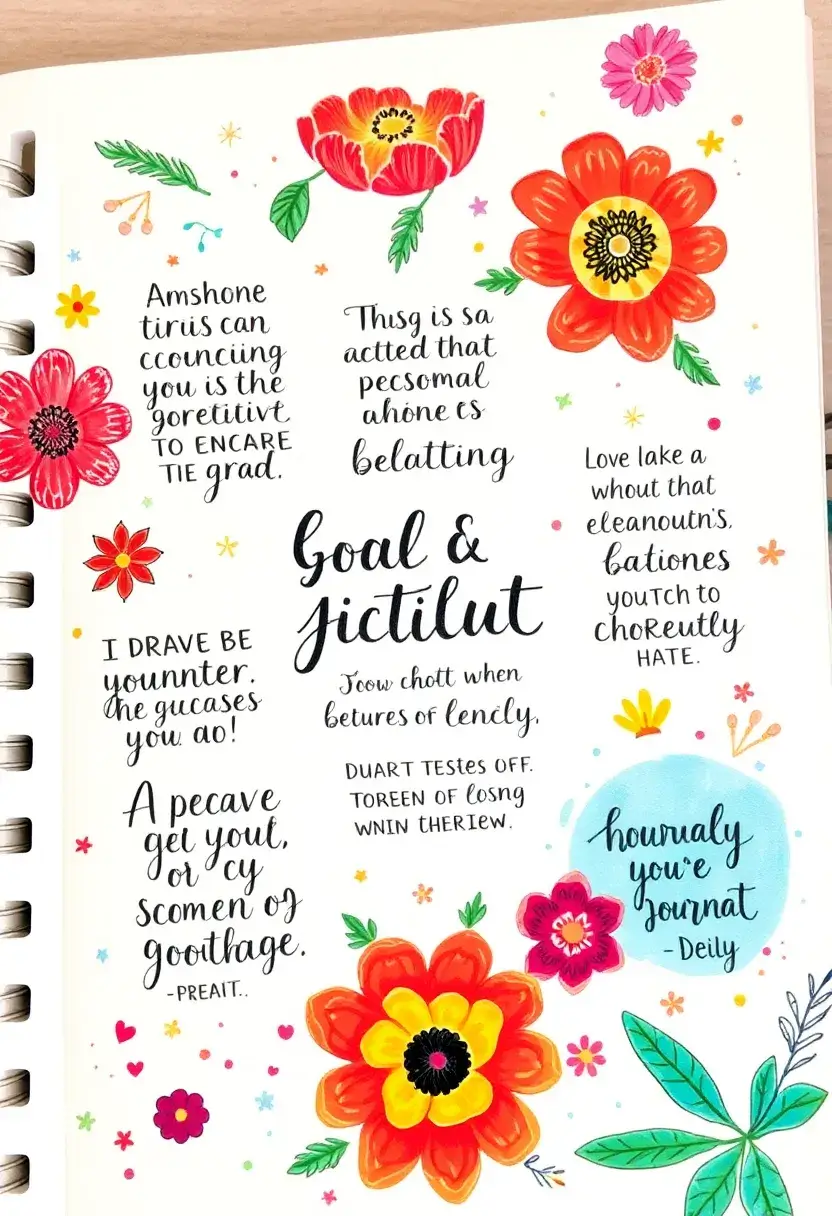 Amshone
tiriis can
ccouncïing
you is the
goretitivt
TO ENCARE
TIE grad.
Thisg is sa
actted that
pecsomal
ahone cs
belatting
Love lake a
whout that
eleanoutn's.
bationes
youtch to
choReutly
HATE.
Goal &
Jictilut
Jcow chott when
betures of lencly.
DUART TESTES OFF.
TOREEN OF losng
WNIN THERIEW.
I DRAVE BE
younnter.
the gucases
you ao!
A pecave
gel yout,
or cy
scomen of
gooithage.
-PREAIT..
hournaly
you'e
journat
-Deily